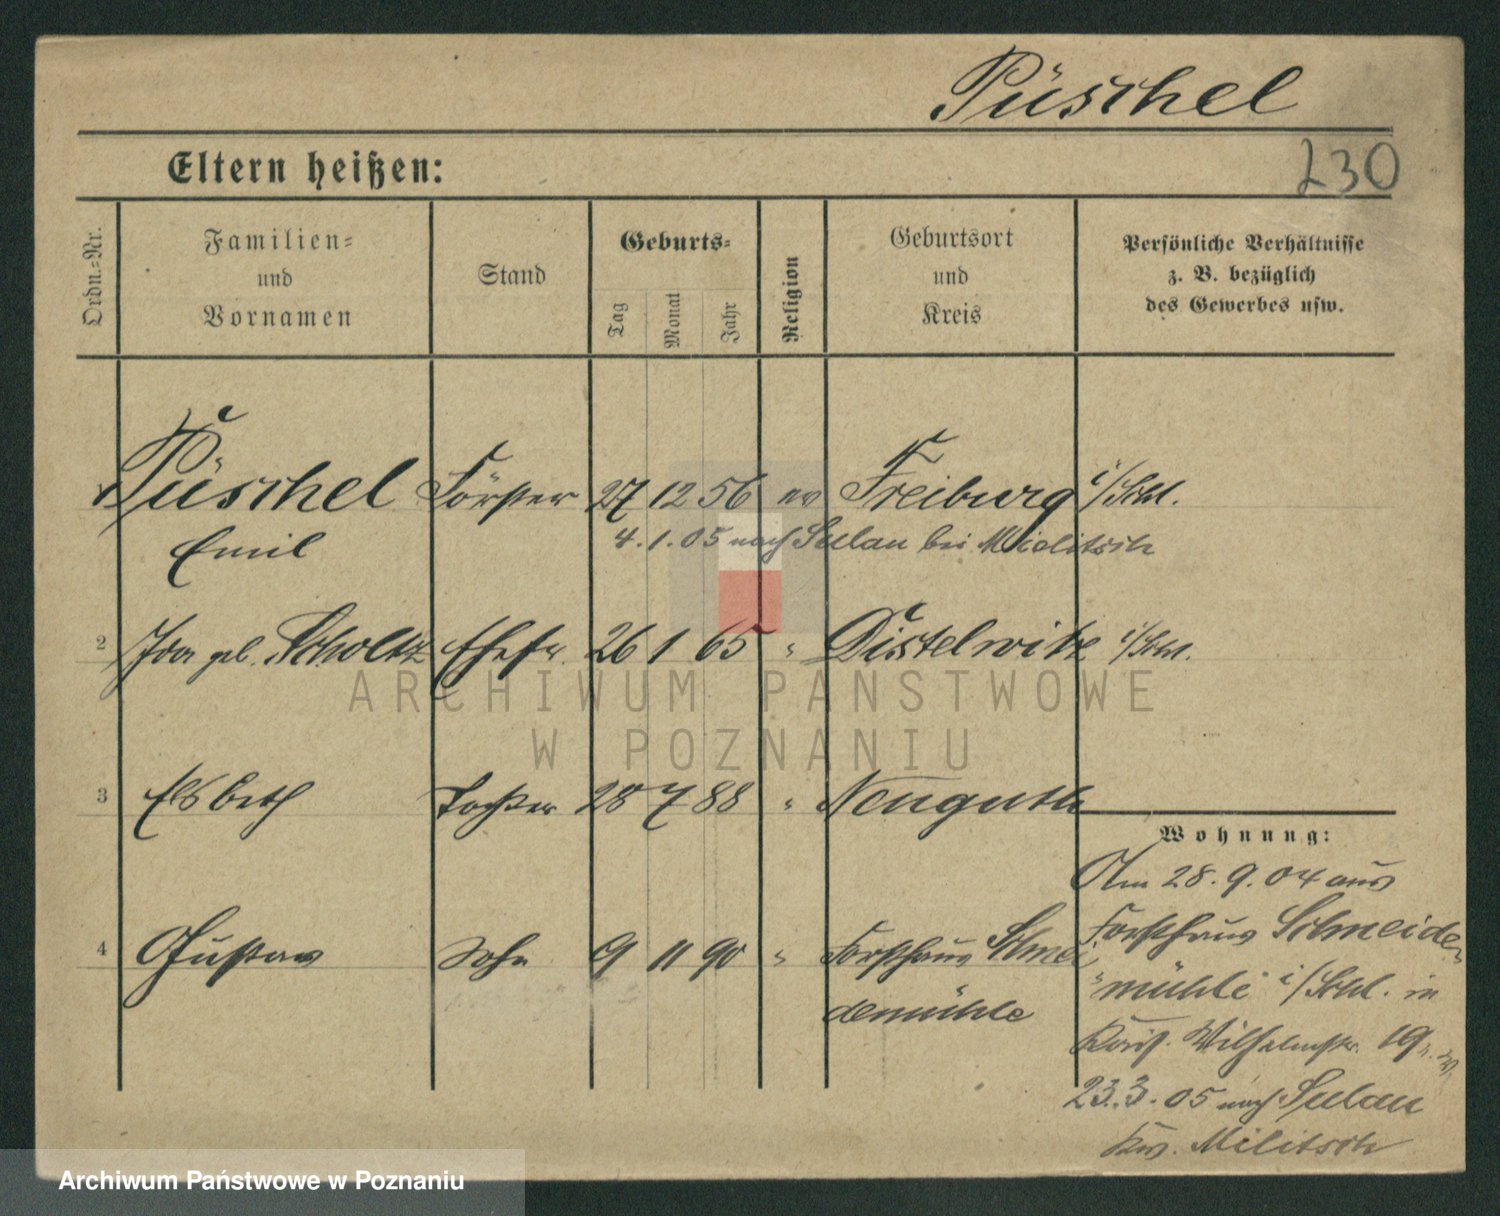 Püschel
230
Eltern heißen:
Ordn.-Nr.
Familien-
und
Vornamen
Stand
Geburts-
Tag
Monat
Jahr
Religion
Geburtsort
und
Kreis
Persönliche Verhältnisse
z. B. bezüglich
des Gewerbes usw.
Püschel Förster 27 12 56 ev Freiburg i/Schl.
Emil
4.1.05 nach Sulau bei Mielitsch
2 Ida geb. Scholtz Ehefr. 26 1 65 " Distelwitz i/Schl.
ARCHIWUM PAŃSTWOWE
W POZNANIU
3 Elsbeth Tochter 28 7 88 " Neuguth
Wohnung:
Am 28.9.04 aus
Forsthaus Schneide-
mühle i/Schl. in
Kais. Wilhelmstr. 19
23.3.05 nach Sulau
Krs. Militsch
4 Gustav Sohn 9 11 90 " Forsthaus Schnei
demühle
Archiwum Państwowe w Poznaniu